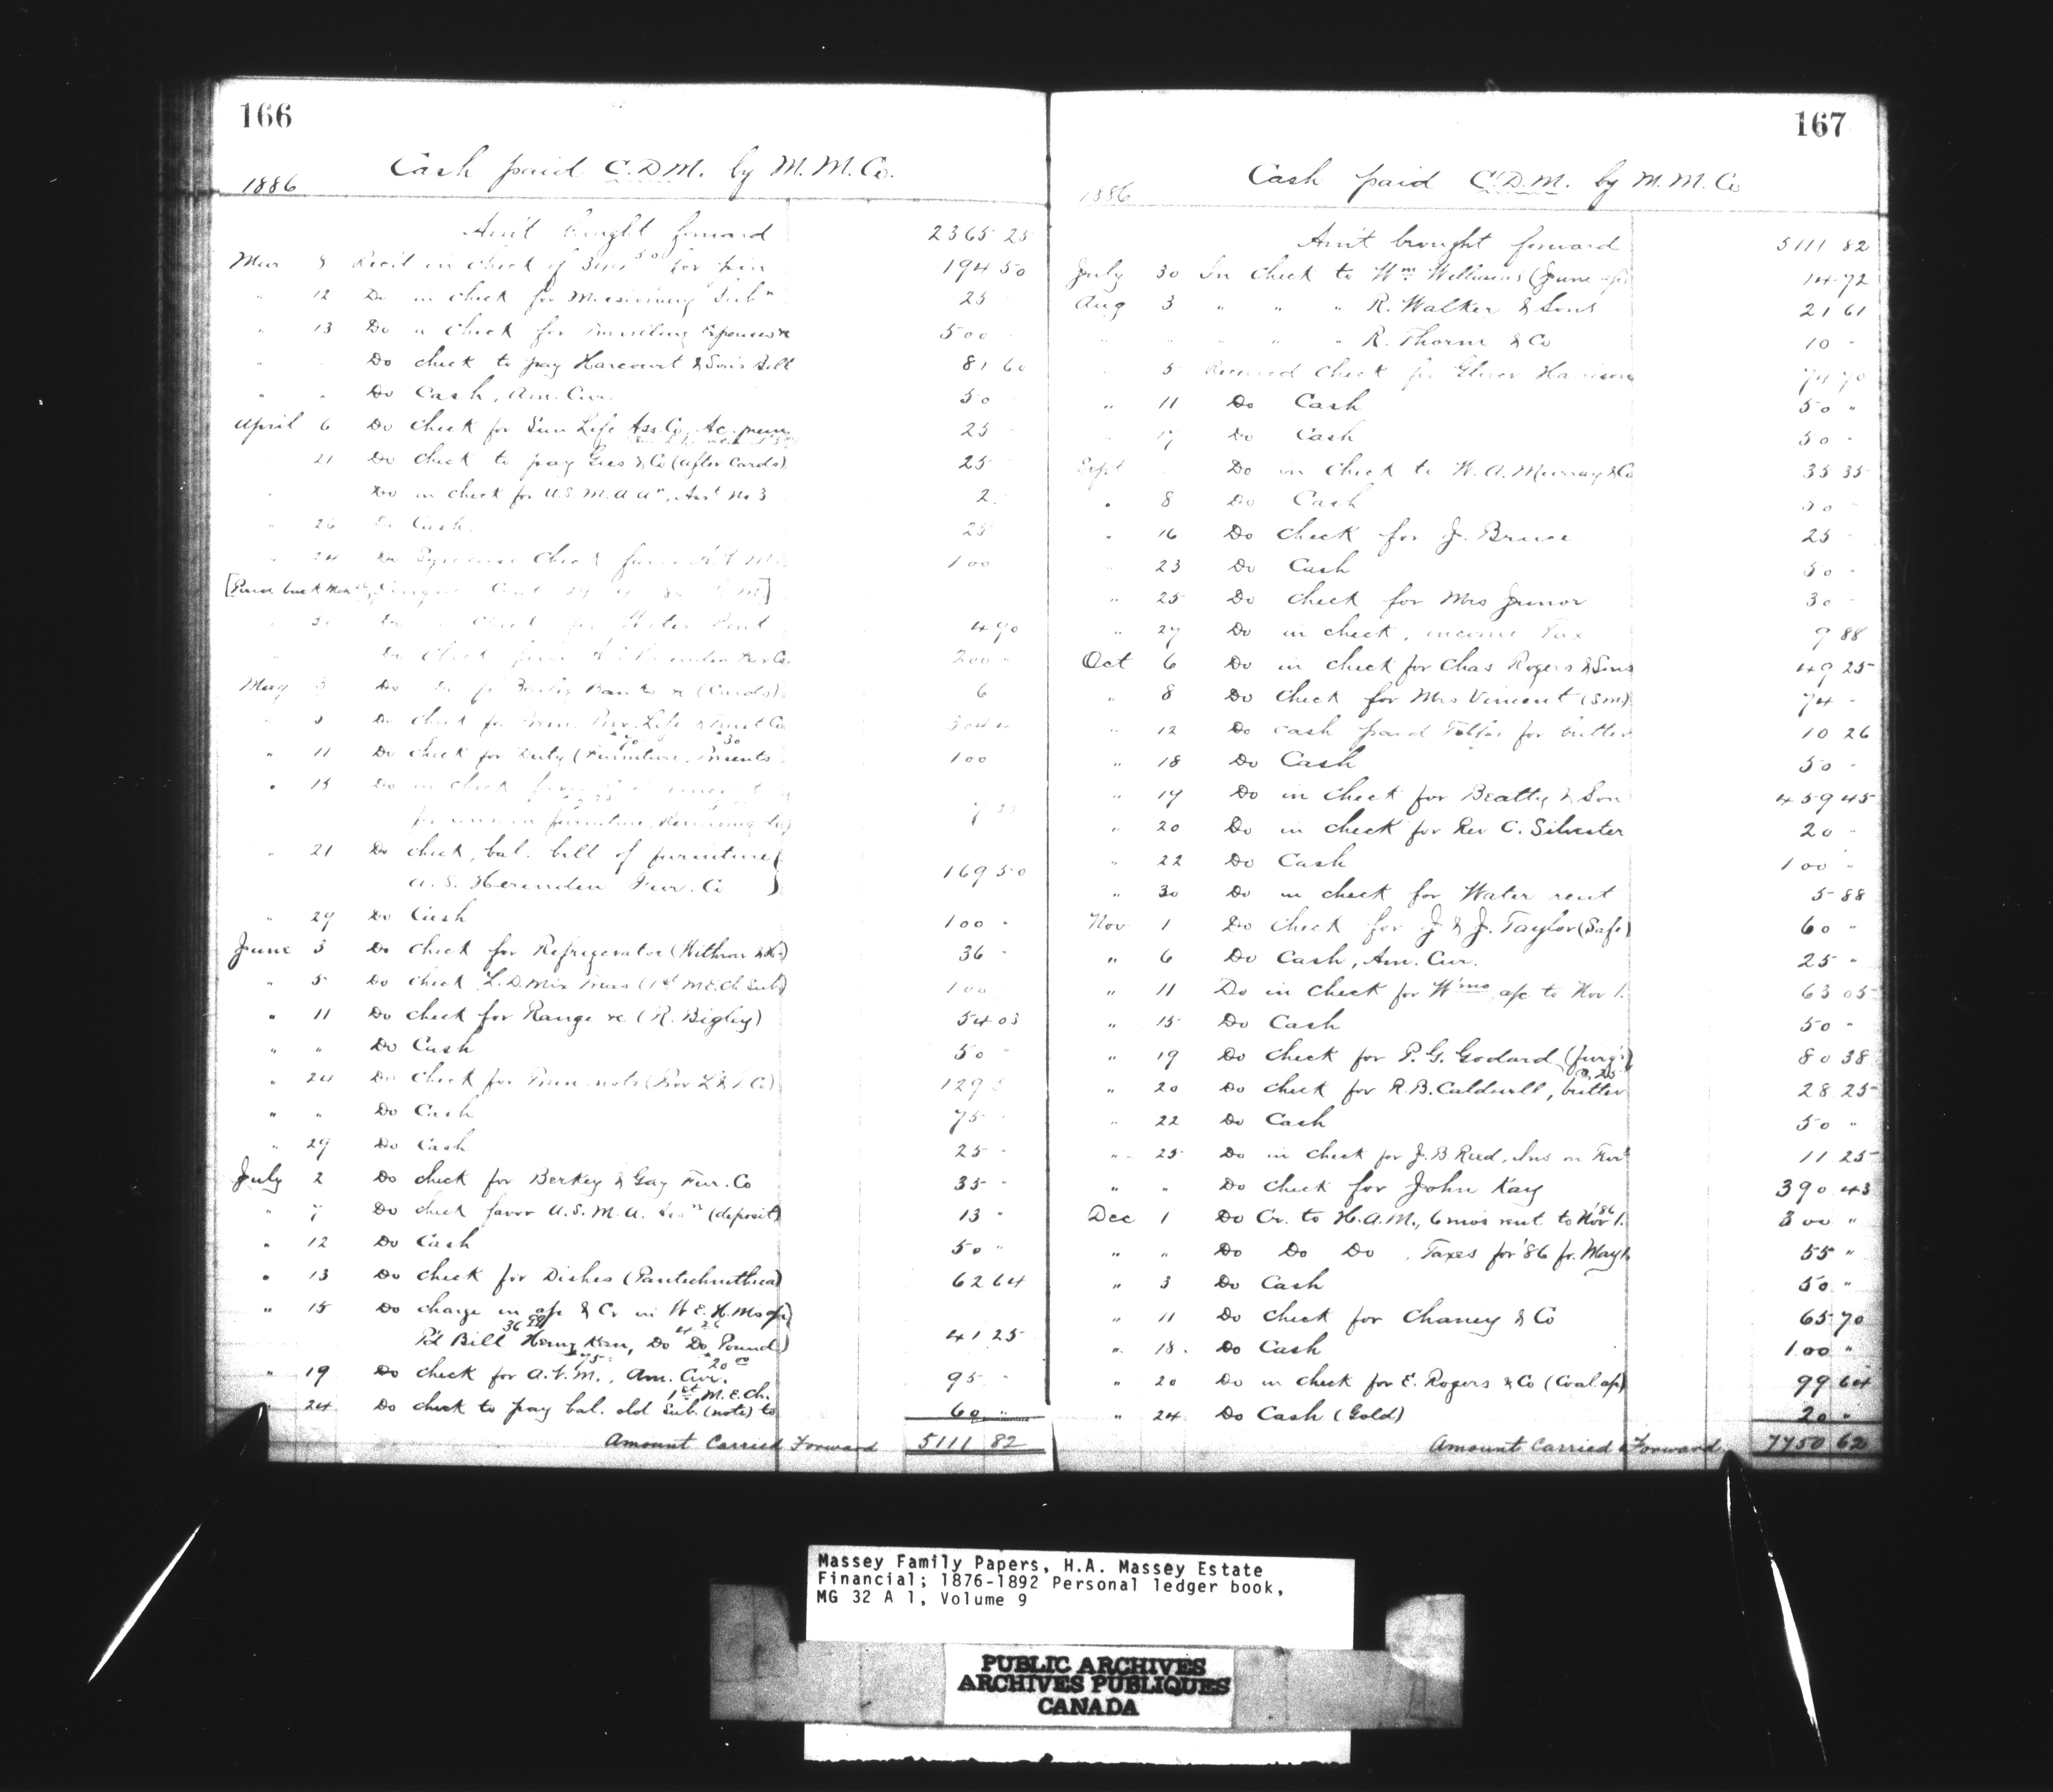 166
Cash paid C.D.M. by M.M.Co.
1886
Am't brought forward 2365 25
Mar 8 Rec'd in check of for 194 50
" 12 Do in check for Missionary Subn 25
" 13 Do a check for Travelling Expenses 500 -
" " Do check to pay Harcourt & Son's Bill 81 60
" " Do Cash, Am. Cur. 50
April 6 Do check for Sun Life Ass. Co. Ac. prem 25
21 Do check to pay Gies & Co (after Cards) 25
" Do in check for U.S.M.A. Asst No 3 2
" 26 Do Cash 25
" 24 Do Syracuse Check favor 100
Do check for Water Rent 4 90
Do check favor Fur Co. 200 -
May 3 Do Do for Bailey Banks &c (Cards) 6
" Do check for Prem. Prov. Life & Trust Co
" 11 Do check for Duty (Furniture 70, Presents 30 100
" 15 Do in check
for furniture 7 25
" 21 Do check, bal. bill of furniture
A.S. Herenden Fur. Co 169 50
" 29 Do Cash 100 -
June 3 Do check for Refrigerator (Withrow & 36 -
" 5 Do check L.D. Mix Treas (1st M.E.Ch Sub) 100
" 11 Do check for Range &c (R. Bigley) 54 03
" " Do Cash 50 -
" 24 Do check for Prem. note (Prov L & T Co) 129
" " Do Cash 75 -
" 29 Do Cash 25 -
July 2 Do check for Berkey & Gay Fur. Co 35 -
" 7 Do check favor U.S.M.A. Assn (deposit) 13 "
" 12 Do Cash 50 "
" 13 Do check for Dishes (Pantechnethca) 62 64
" 15 Do charge in a/c & Cr in W.E.H.M's a/c
Pd Bill Henry Kerr, Do Do Pound 41 25
" 19 Do check for A.V.M. 75, Am. Cur. 20 00 95 -
" 24 Do check to pay bal. old Sub. (note) to 1st M.E.Ch. 60 "
Amount Carried Forward 5111 82
167
Cash paid C.D.M. by M.M.Co
1886
Am't brought forward 5111 82
July 30 In check to Wm Williams (June a/c) 14 72
Aug 3 " " " R. Walker & Sons 21 61
" " " " R. Thorne & Co 10 -
" 5 Received check for Glover Harrison 74 70
" 11 Do Cash 50 "
" 17 Do Cash 50 -
Sept Do in check to W.A. Murray & Co 35 35
" 8 Do Cash 50 -
" 16 Do check for J. Bruce 25 -
" 23 Do Cash 50 -
" 25 Do check for Mrs Junor 30 -
" 27 Do in check, income Tax 9 88
Oct 6 Do in check for Chas Rogers & Sons 49 25
" 8 Do check for Mrs Vincent (Sm) 74 -
" 12 Do cash paid for butter 10 26
" 18 Do Cash 50 -
" 19 Do in check for Beatty & Son 459 45
" 20 Do in check for Rev C. Silvester 20 -
" 22 Do Cash 100 "
" 30 Do in check for Water rent 5 88
Nov 1 Do check for J & J. Taylor (Safe) 60 "
" 6 Do Cash, Am. Cur. 25 "
" 11 Do in check for Wms a/c to Nov 1. 63 05
" 15 Do Cash 50 "
" 19 Do check for P.G. Godard 80 38
" 20 Do check for R.B. Caldwell, butter 28 25
" 22 Do Cash 50 "
" 25 Do in check for J.B Reed, Ins on Fur 11 25
" " Do check for John Kay 390 43
Dec 1 Do Cr. to H.A.M., 6 mos rent to Nov 1. '86 300 "
" " Do Do Do, Taxes for '86 fr. May 1. 55 "
" 3 Do Cash 50 "
" 11 Do check for Chaney & Co 65 70
" 18. Do Cash 100 "
" 20 Do in check for E. Rogers & Co (Coal a/c) 99 64
" 24 Do Cash (Gold) 20 "
Amount Carried Forward 7750 62
Massey Family Papers, H.A. Massey Estate
Financial; 1876-1892 Personal ledger book,
MG 32 A 1, Volume 9
PUBLIC ARCHIVES
ARCHIVES PUBLIQUES
CANADA